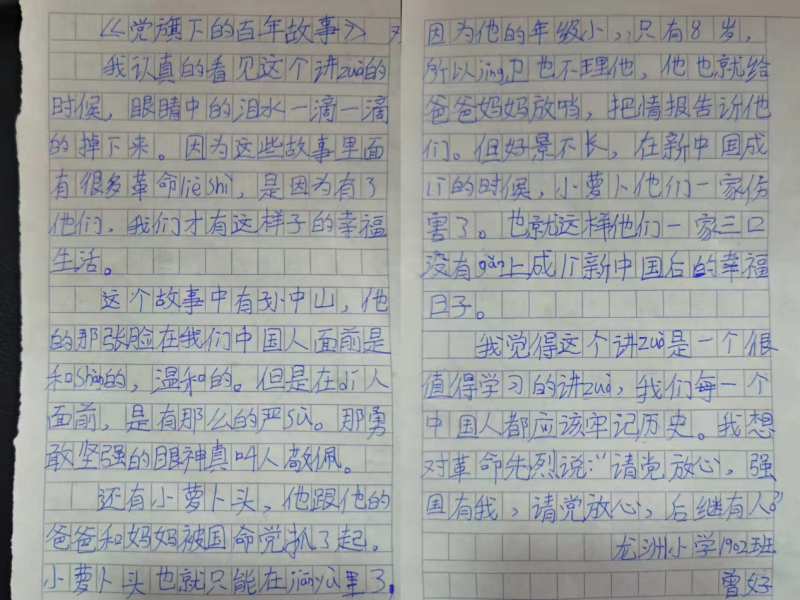 《党旗下的百年故事》
我认真的看见这个讲zuò的
时候，眼睛中的泪水一滴一滴
的掉下来。因为这些故事里面
有很多革命liè shì，是因为有了
他们，我们才有这样子的幸福
生活。
这个故事中有孙中山，他
的那张脸在我们中国人面前是
和shàn的，温和的。但是在dí人
面前，是有那么的严sù。那勇
敢坚强的眼神真叫人敬佩。
还有小萝卜头，他跟他的
爸爸和妈妈被国命党抓了起。
小萝卜头也就只能在jiān yù里了，
因为他的年级小，只有8岁，
所以jǐng卫也不理他，他也就给
爸爸妈妈放哨，把情报告诉他
们。但好景不长，在新中国成
立的时候，小萝卜他们一家伤
害了。也就这样他们一家三口
没有gǎn上成立新中国后的幸福
日子。
我觉得这个讲zuò是一个很
值得学习的讲zuò，我们每一个
中国人都应该牢记历史。我想
对革命先烈说：“请党放心，强
国有我，请党放心，后继有人。”
龙洲小学1902班
曾好